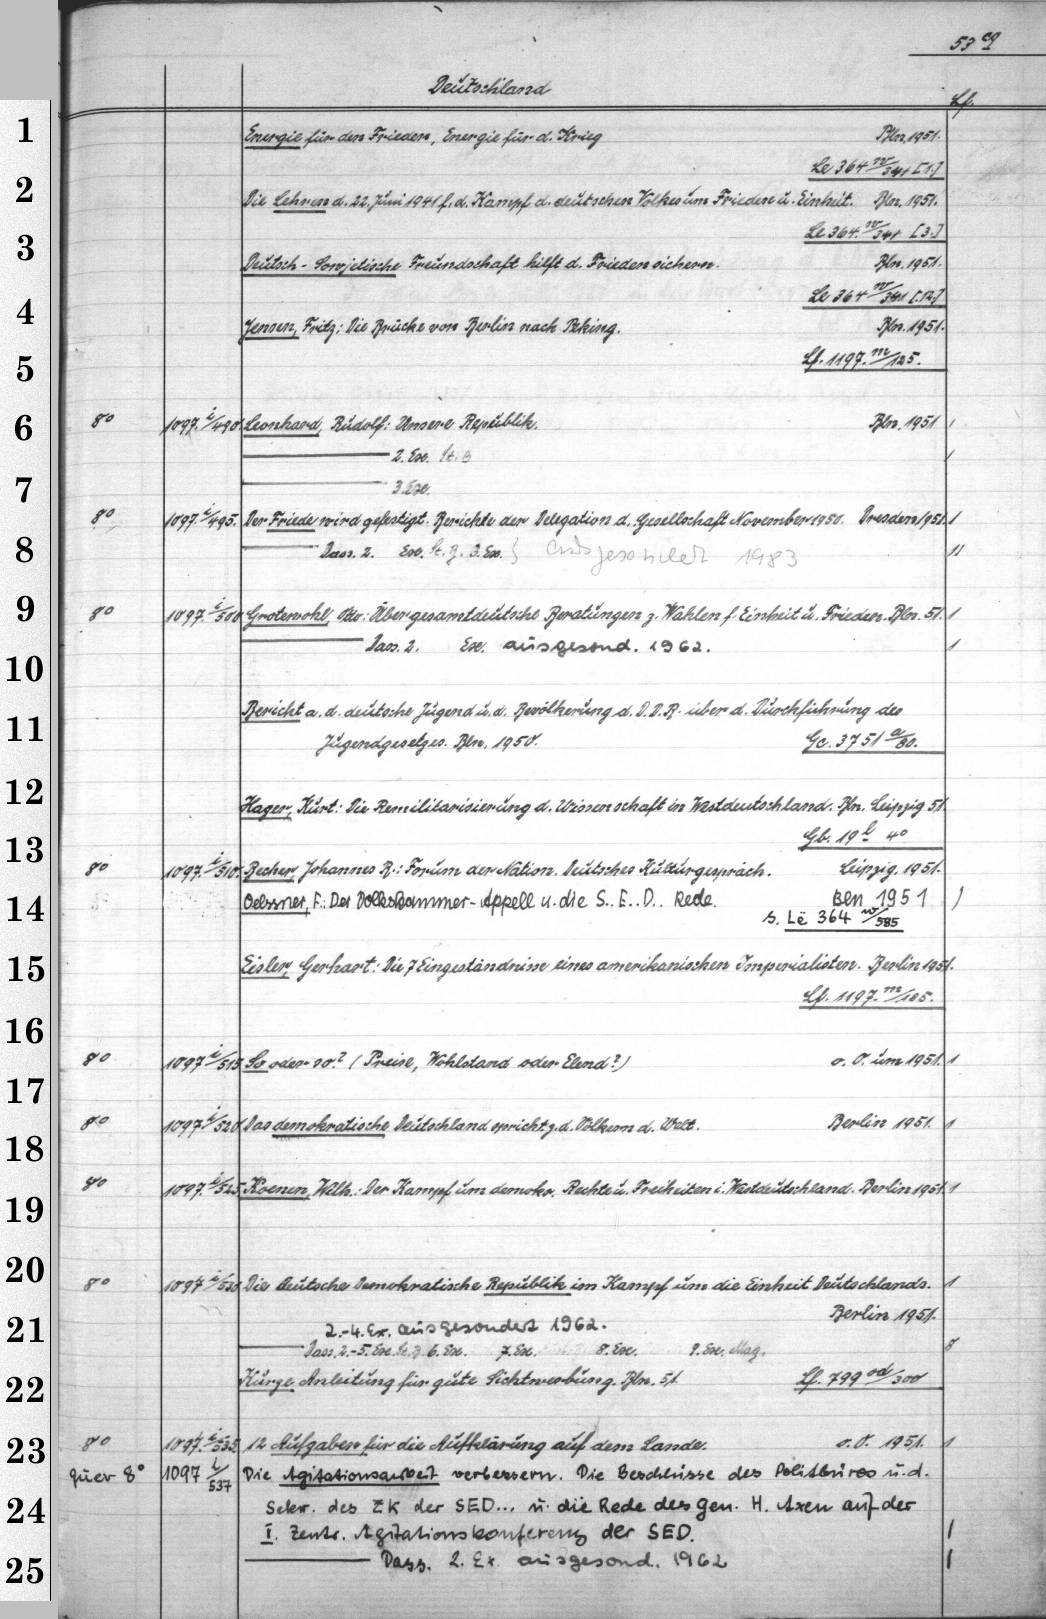 53 eq
Deutschland
Lf.
1 Energie für den Frieden, Energie für d. Krieg Bln. 1951.
Le 364 w/341 [1.]
2 Die Lehren d. 22. Juni 1941 f. d. Kampf d. deutschen Volkes um Frieden u. Einheit. Bln. 1951.
Le 364. w/341 [3.]
3 Deutsch-Sowjetische Freundschaft hilft d. Frieden sichern. Bln. 1951.
4 Le 364 w/341 [12.]
Jensen, Fritz: Die Brücke von Berlin nach Peking. Bln. 1951.
5 Lf. 1197. m/125.
6 8° 1097. i/490. Leonhard, Rudolf: Unsere Republik. Bln. 1951 1
2. Ex. St. B 1
7 3. Ex.
8° 1097. i/495. Der Friede wird gefestigt. Berichte der Delegation d. Gesellschaft November 1950. Dresden 1951. 1
8 Dass. 2. Ex. St. B. 3. Ex. } ausgesondert 1983 11
9 8° 1097. i/500 Grotewohl, Otto: Über gesamtdeutsche Beratungen z. Wahlen f. Einheit u. Frieden. Bln. 51. 1
Dass. 2. Ex. ausgesond. 1962. 1
10
11 Bericht a. d. deutsche Jugend u. d. Bevölkerung d. D.D.R. über d. Durchführung des
Jugendgesetzes. Bln. 1950. Gc. 3751 a/80.
12 Hager, Kurt: Die Remilitarisierung d. Wissenschaft in Westdeutschland. Bln. Leipzig 51.
13 Gb. 19 l 4°
8° 1097. i/510. Becher, Johannes R.: Forum der Nation. Deutsches Kulturgespräch. Leipzig. 1951.
14 Oelssner, F.: Der Volkskammer-Appell u. die S.E.D. Rede. Bln 1951 )
s. Le 364 w/585
15 Eisler, Gerhart: Die 7 Eingeständnisse eines amerikanischen Imperialisten. Berlin 1951.
Lf. 1197. m/105.
16 8° 1097 i/515 So oder so? (Preise, Wohlstand oder Elend?) o. O. um 1951. 1
17 8° 1097 i/520 Das demokratische Deutschland spricht z. d. Völkern d. Welt. Berlin 1951. 1
18
8° 1097. i/525 Koenen, Wilh.: Der Kampf um demokr. Rechte u. Freiheiten i. Westdeutschland. Berlin 1951. 1
19
20 8° 1097 i/530 Die Deutsche Demokratische Republik im Kampf um die Einheit Deutschlands. 1
Berlin 1951.
21 2.-4. Ex. ausgesondert 1962.
Dass. 2.-5. Ex. St. B 6. Ex. 7. Ex. 8. Ex. 9. Ex. Mag. 8
22 Kurze Anleitung für gute Sichtwerbung. Bln. 51. Lf. 799 od/300
23 8° 1097. i/535 12 Aufgaben für die Aufklärung auf dem Lande. o. O. 1951. 1
quer 8° 1097 i/537 Die Agitationsarbeit verbessern. Die Beschlüsse des Politbüros u. d.
24 Sekr. des ZK der SED... u. die Rede des Gen. H. Axen auf der
I. Zentr. Agitationskonferenz der SED. 1
25 Dass. 2. Ex. ausgesond. 1962 1